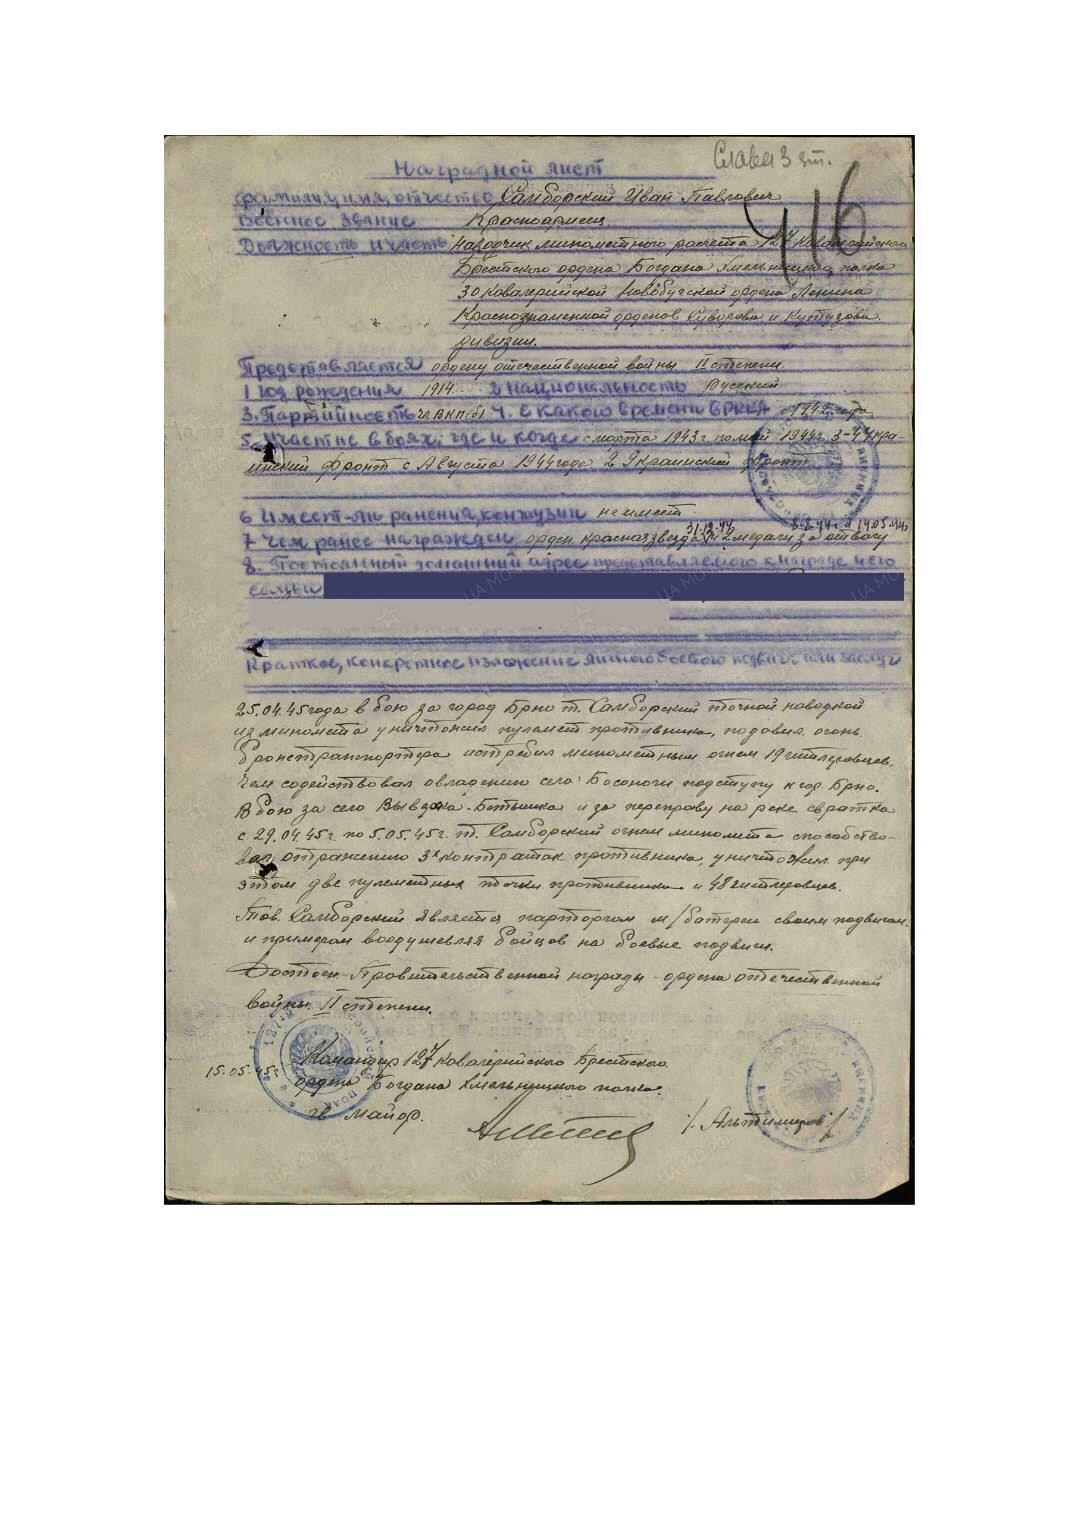 Слава 3 ст.
Наградной лист
416
Фамилия, имя, отчество Самборский Иван Павлович
Военное звание Красноармеец
Должность и часть Наводчик минометного расчета 127 Кавалерийского
Брестского ордена Богдана Хмельницкого полка
30 Кавалерийской Новобугской ордена Ленина
Краснознаменной орденов Суворова и Кутузова
дивизии.
Представляется ордену отечественной войны II степени.
1 Год рождения 1914 2 национальность Русский
3. Партийность чл ВКП(б) 4. С какого времени в РККА с 1942 года
5. Участие в боях: где и когде с марта 1943 г по май 1944 г. 3-4 Укра-
инский фронт с Августа 1944 года 2 Украинский фронт
6 Имеет-ли ранения, контузии не имеет
31.12.44 8.8.44 г. и 14.05
7. Чем ранее награжден орден красная звезда и 2 медали за отвагу
8. Постоянный домашний адрес представляемого к награде и его
семьи
Краткое, конкретное изложение личного боевого подвига или заслуг
25.04.45 года в бою за город Брно т. Самборский точной наводкой
из миномета уничтожил пулемет противника, подовил огонь
бронетранспортера истребил минометным огнем 19 гитлеровцев.
Чем содействовал овладению села Босоноги подступу к гор. Брно.
В бою за село Бетышка и за переправу на реке свратка
с 29.04.45 г. по 5.05.45 г. т. Самборский огнем миномета способство-
вал отражению 3х контратак противника, уничтожил при
этом две пулеметных точки противника и 48 гитлеровцев.
Тов. Самборский является парторгом м/батереи своим подвигом
и примером воодушевляя бойцов на боевые подвиги.
Достоен Правительственной награды - ордена отечественной
войны II степени.
Командир 127 Кавалерийского Брестского
15.05.45 г. ордена Богдана Хмельницкого полка
гв майор. / Альтимиров /